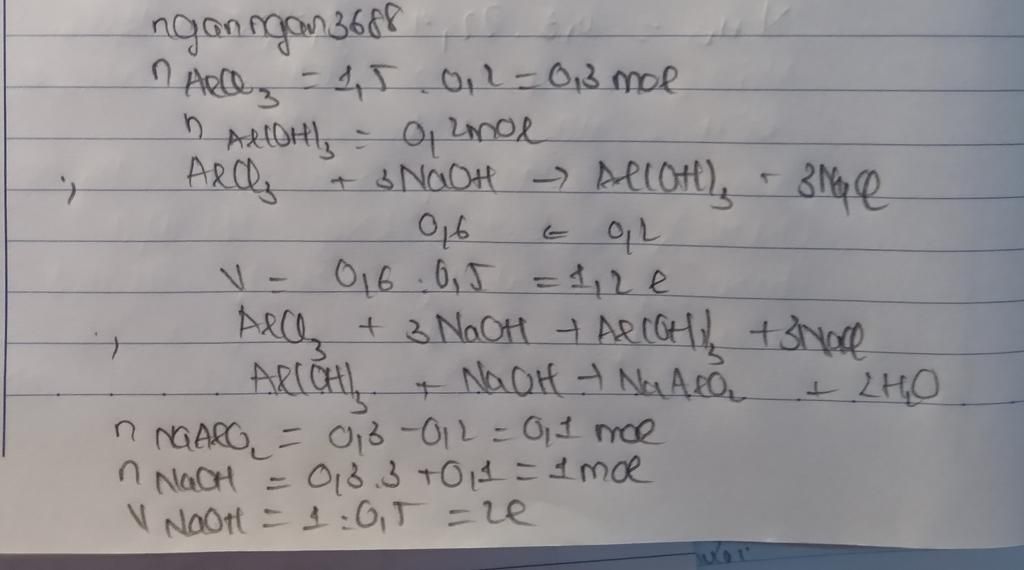 nganngan3688
n AlCl3 = 1,5 . 0,2 = 0,3 mol
n Al(OH)3 = 0,2mol
; AlCl3 + 3NaOH → Al(OH)3 - 3NaCl
0,6 ← 0,2
V = 0,6 : 0,5 = 1,2 l
; AlCl3 + 3NaOH → Al(OH)3 + 3NaCl
Al(OH)3 + NaOH → NaAlO2 + 2H2O
n NaAlO2 = 0,3 - 0,2 = 0,1 mol
n NaOH = 0,3.3 + 0,1 = 1 mol
V NaOH = 1 : 0,5 = 2l